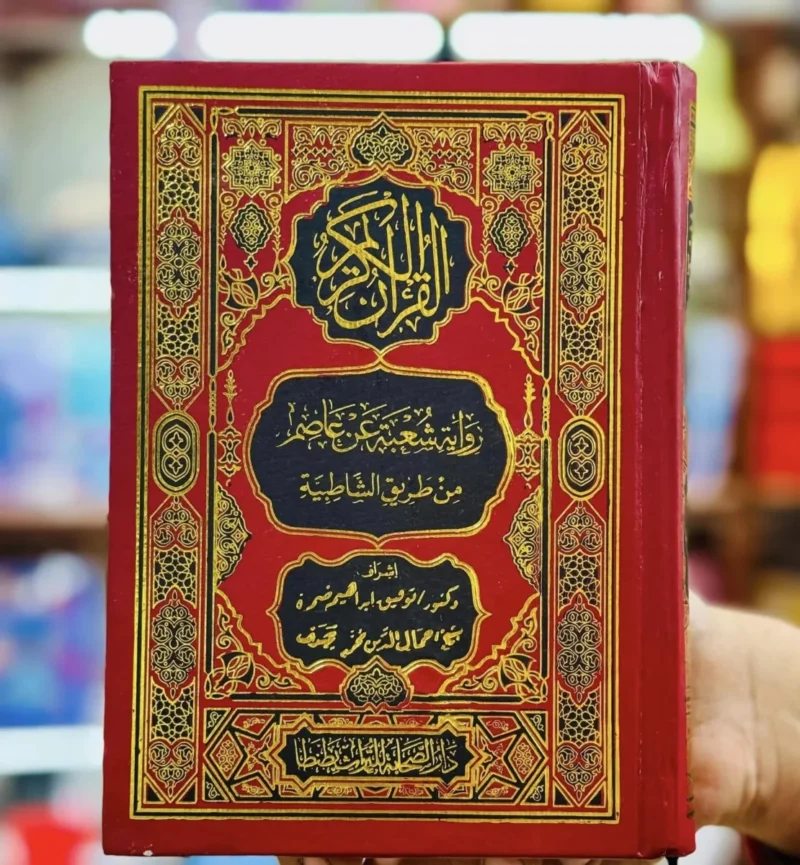 القرآن الكريم
رواية شعبة عن عاصم
من طريق الشاطبية
إشراف
دكتور / توفيق إبراهيم ضمرة
شيخ / جمال الدين محمد شرف
دار الصحابة للتراث بطنطا